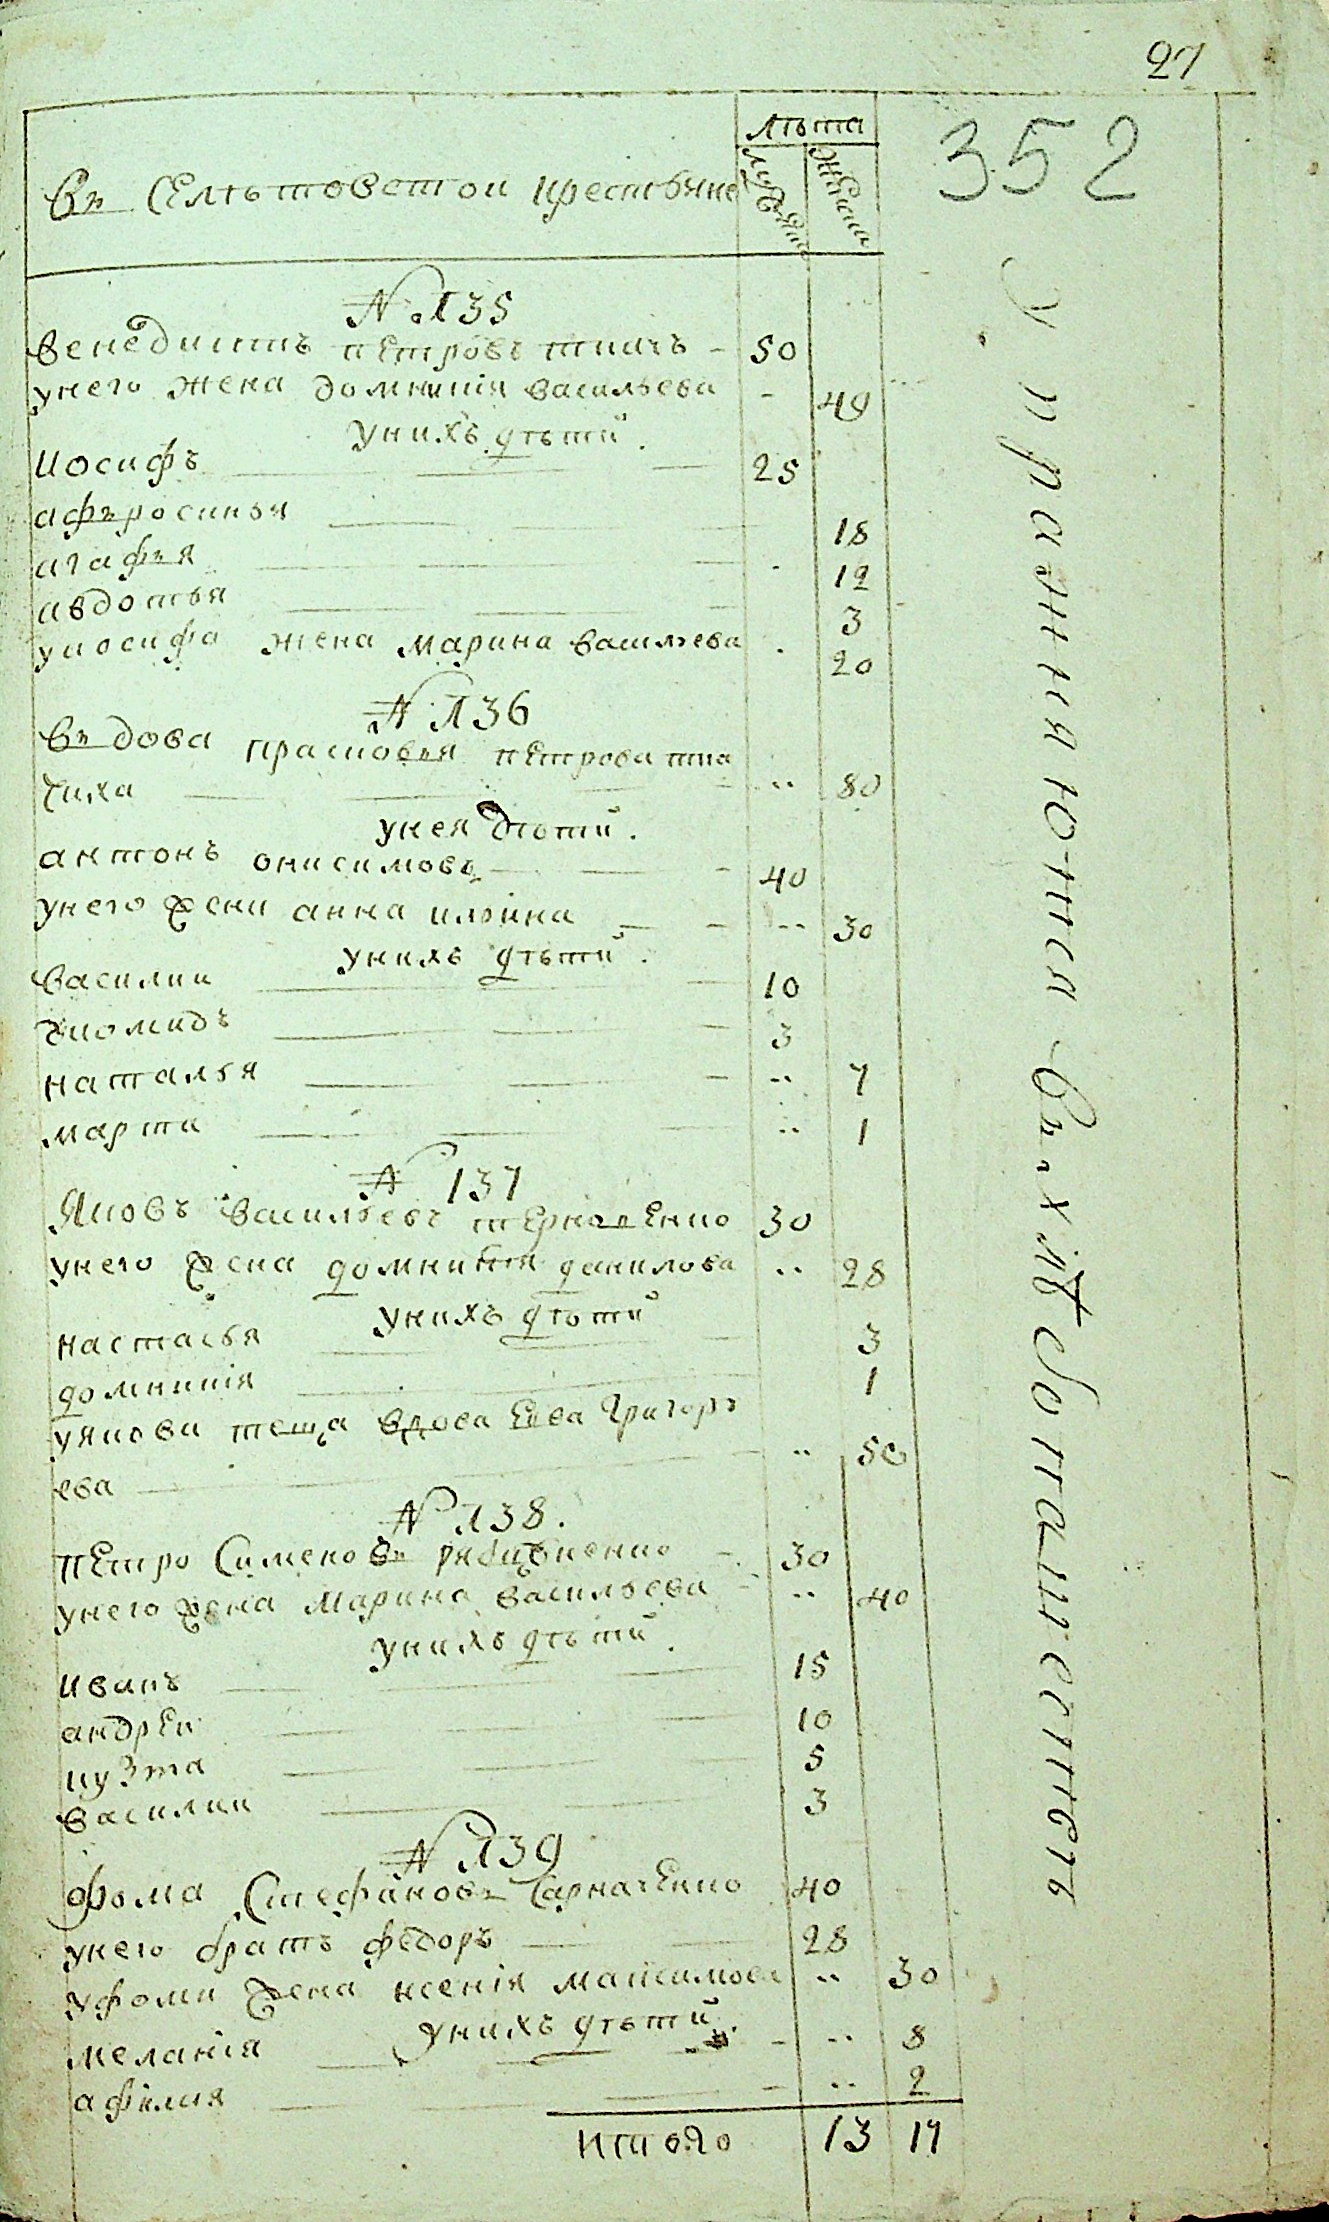 27
352
лѣта
Въ Селѣ товстой крестьяне
мужеска
женска
N 135
Венедиктъ петровъ ткачъ 50
унего жена домникія васильева 49
унихъ дѣти
иосифъ 25
афъросинья 18
агафъя 12
авдотья 3
уиосифа жена марина васильева 20
N 136
Въдова прасковъя петрова тка
чиха 80
унея дѣти
антонъ онисимовъ 40
унего жена анна ильина 30
унихъ дѣти
василии 10
диомидъ 3
наталья 7
марта 1
N 137
Яковъ васильевъ 30
унего жена домникія данилова 28
унихъ дѣти
настасья 3
домникія 1
уякова теща вдова Ева Григорь
ева 50
N 138
петро Сименовъ 30
унего жена марина васильева 40
унихъ дѣти
иванъ 15
андрей 10
кузма 5
василии 3
N 139
Фома Стефановъ Сарначенко 40
унего братъ федоръ 28
уфомы жена ксенія максимова 30
унихъ дѣти
меланія 8
афимия 2
Итого 13 17
Упражняются въ хлѣбопашестьвѣ